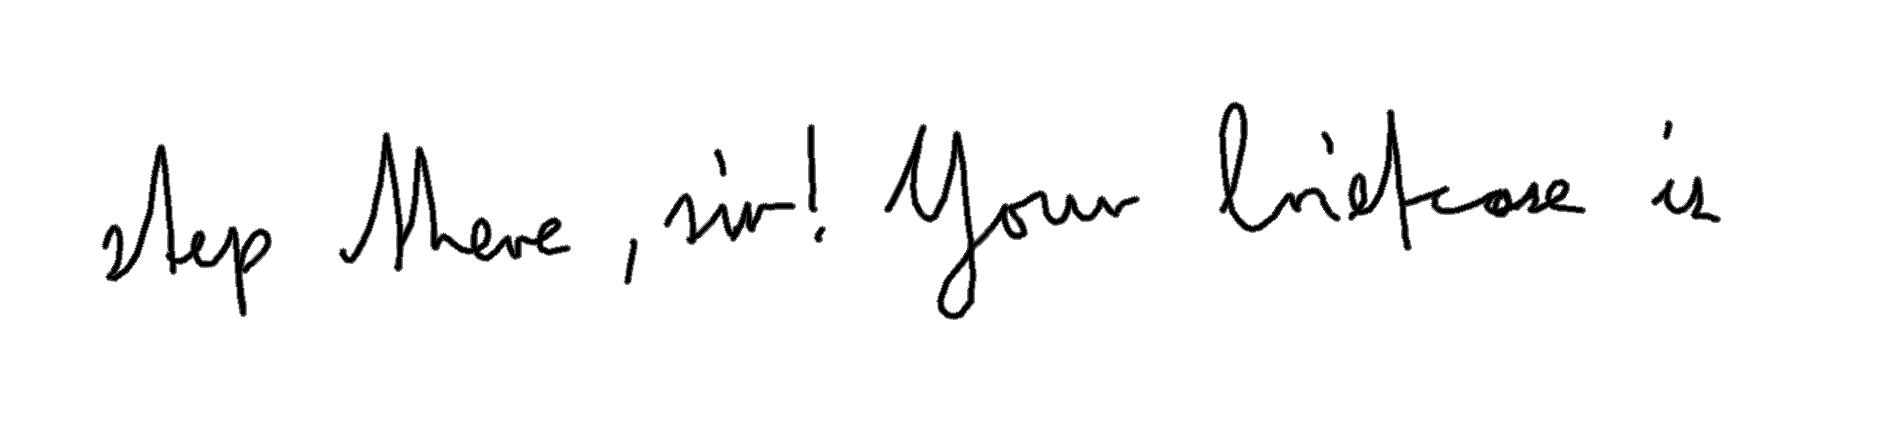 step there, sir! Your briefcase is